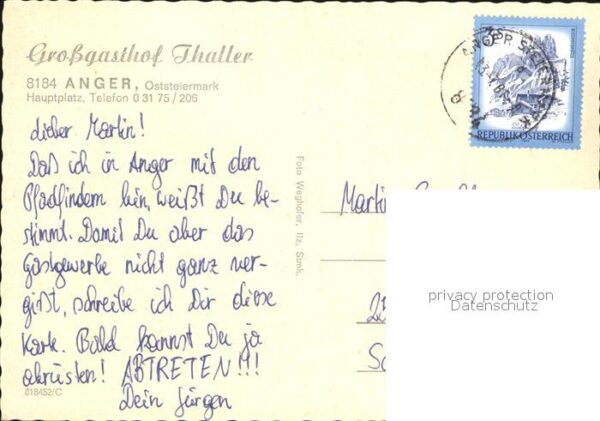 Großgasthof Thaller
8184 ANGER, Oststeiermark
Hauptplatz, Telefon 0 31 75 / 206
Lieber Martin!
Daß ich in Anger mit den
Pfadfindern bin, weißt Du be-
stimmt. Damit Du aber das
Gastgewerbe nicht ganz ver-
gißt, schreibe ich Dir diese
Karte. Bald kannst Du ja
abrüsten! ABTRETEN!!!
Dein Jürgen
818452/C
Foto Weghofer, Ilz, Stmk.
REPUBLIK ÖSTERREICH
Martin
privacy protection
Datenschutz